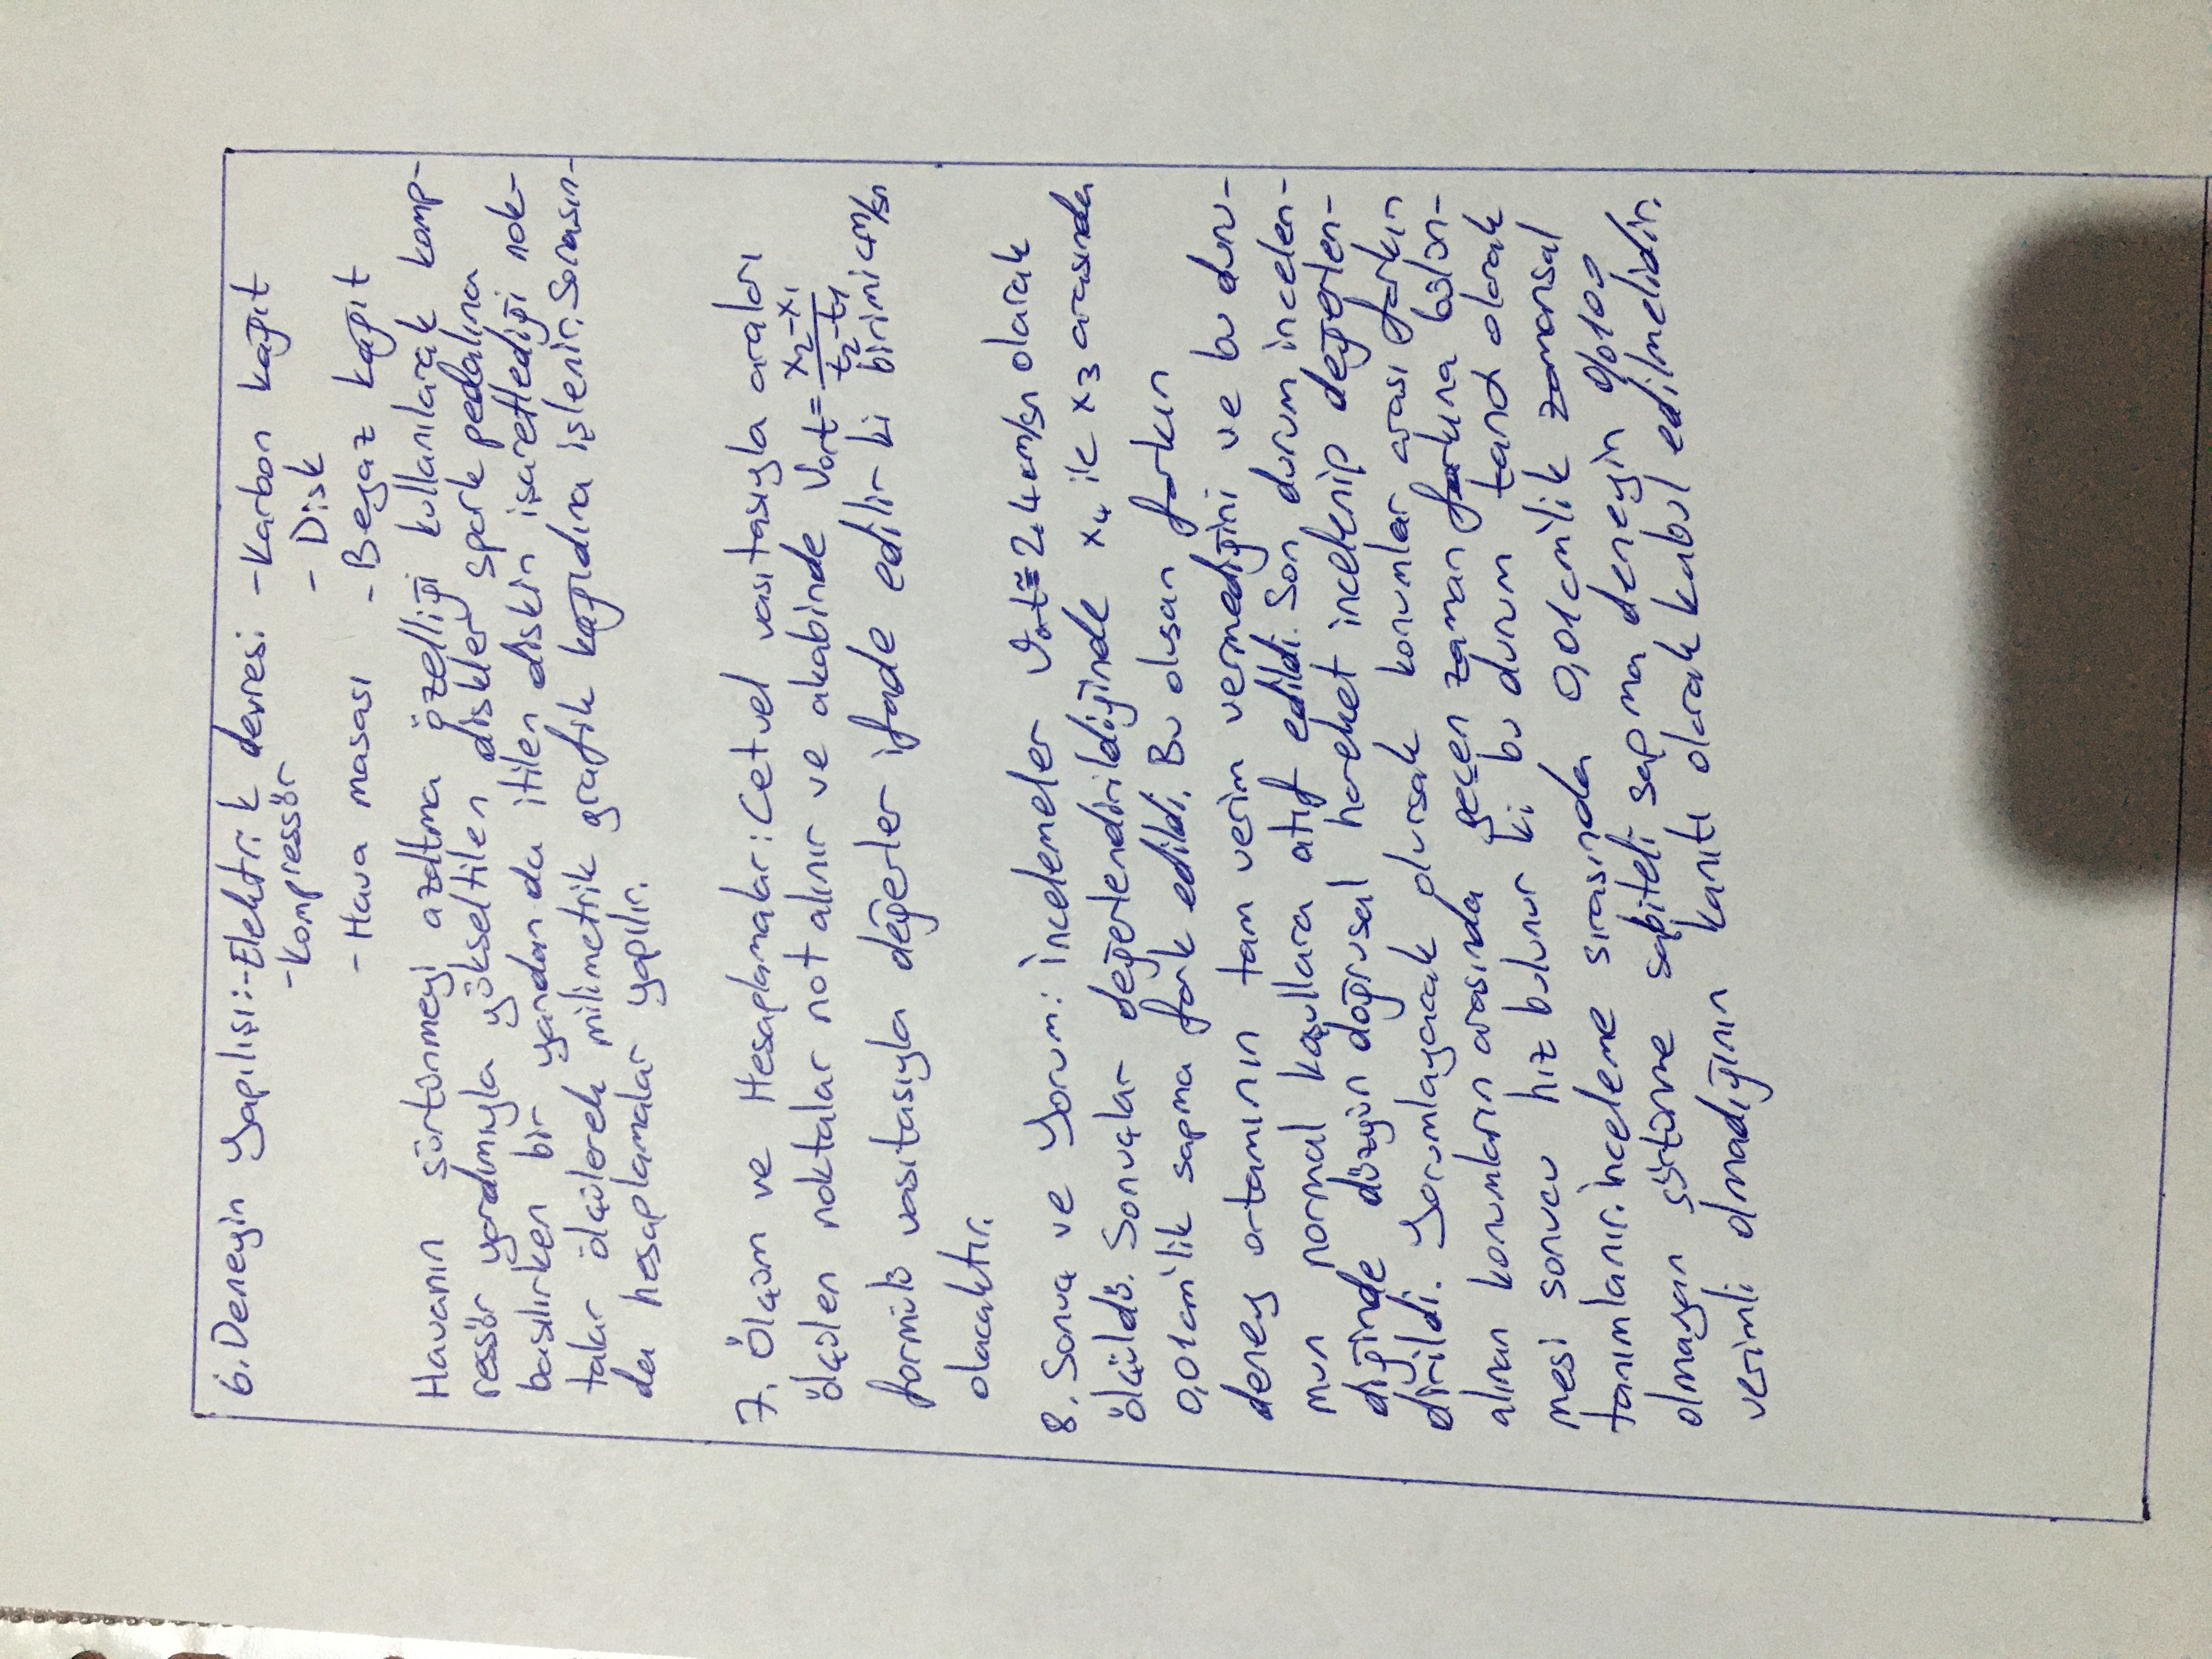 6. Deneyin Yapılışı: -Elektrik devresi -Karbon kağıt
-Kompressör - Disk
- Hava masası - Beyaz kağıt
Havanın sürtünmeyi azaltma özelliği kullanılarak komp-
ressör yardımıyla yükseltilen diskler spark pedalına
basılırken bir yandan da itilen diskin işaretlediği nok-
talar ölçülerek milimetrik grafik kağıdına işlenir. Sonasın-
da hesaplamalar yapılır.
7. Ölçüm ve Hesaplamalar: Cetvel vasıtasıyla araları
ölçülen noktalar not alınır ve akabinde Vort = (x₂-x₁)/(t₂-t₁)
formülü vasıtasıyla değerler ifade edilir ki birimi cm/sn
olacaktır.
8. Sonuç ve Yorum: İncelemeler Vort ≅ 2,4 cm/sn olarak
ölçüldü. Sonuçlar değerlendirildiğinde x₄ ile x₃ arasında
0,01cm'lik sapma fark edildi. Bu olusan farkın
deney ortamının tam verim vermediğini ve bu duru-
mun normal koşullara atıf edildi. Son durum incelen-
diğinde düzgün doğrusal hareket incelenip değerlen-
dirildi. Yorumlayacak olursak konumlar arası farkın
alınan konumların arasında geçen zaman farkına bölün-
mesi sonucu hız bulunur ki bu durum tanα olarak
tanımlanır. İnceleme sırasında 0,01cm'lik zamansal
olmayan sürtünme sabiteli sapma deneyin %100
verimli olmadığının kanıtı olarak kabul edilmelidir.